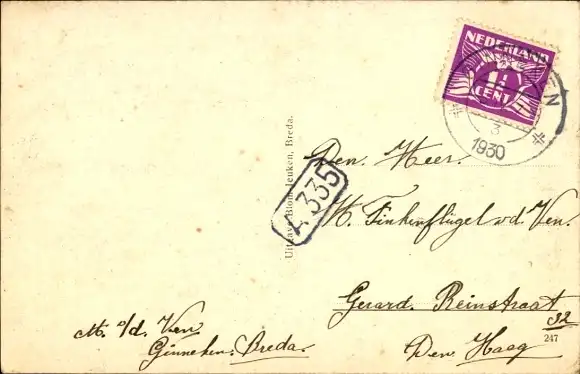 NEDERLAND
1½
CENT
3
1930
Uitgave Blom Jeuken, Breda.
A 335
Den Heer.
W. Finkenflügel v/d Ven.
Gerard. Reinstraat
32
Den Haag
247
M. v/d. Ven
Ginneken. Breda.